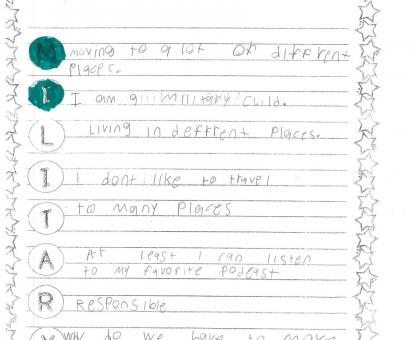 M moving to a lot of different
places.
I I am a military child.
L Living in deffrent places.
I I dont like to travel
T to many places
A At least I can listen
to my favorite podcast
R Responsible
Y Why do we have to move